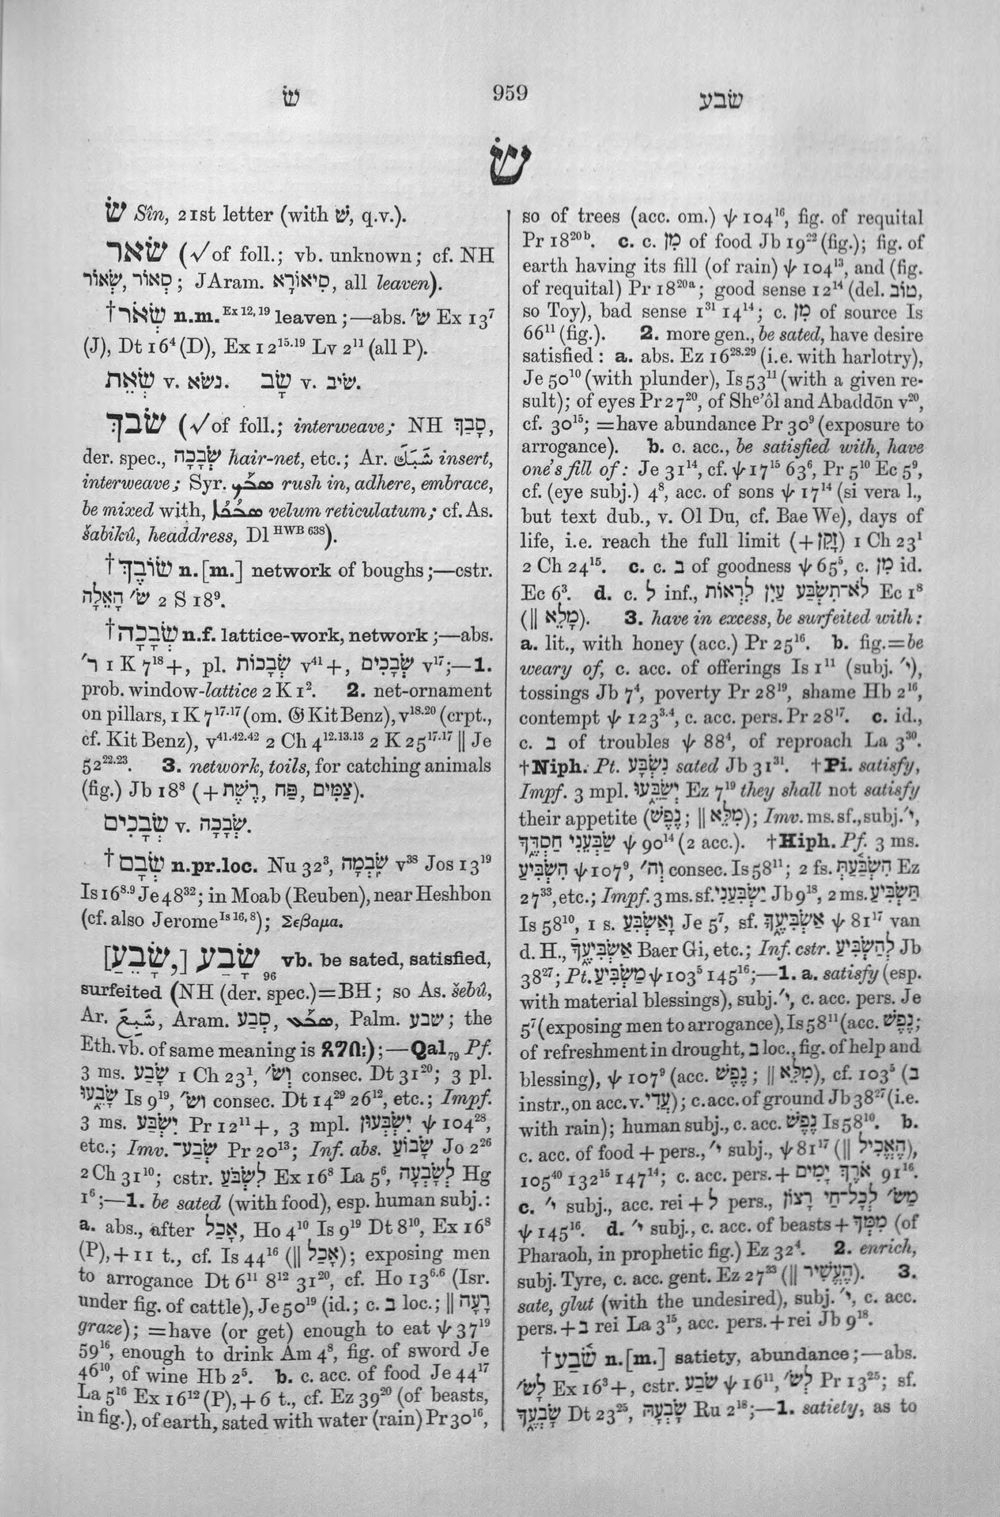 שׂ
959
שׂבע
שׂ
שׂ Sîn, 21st letter (with שׁ, q.v.).
שׂאר (√ of foll.; vb. unknown; cf. NH
שְׂאוֹר, סְאוֹר; JAram. סִיאוֹרָא, all leaven).
†שְׂאֹר n.m. Ex 12, 19 leaven;—abs. שׂ׳ Ex 13⁷
(J), Dt 16⁴ (D), Ex 12¹⁵·¹⁹ Lv 2¹¹ (all P).
שְׂאֵת v. נשׂא. שָׂב v. שׂיב.
שׂבך (√ of foll.; interweave; NH סָבַךְ,
der. spec., שְׂבָכָה hair-net, etc.; Ar. شَبَكَ insert,
interweave; Syr. rush in, adhere, embrace,
be mixed with, velum reticulatum; cf. As.
šabikû, headdress, Dl HWB 638).
†שׂוֹבֶךְ n.[m.] network of boughs;—cstr.
שׂ׳ הָאֵלָה 2 S 18⁹.
†שְׂבָכָה n.f. lattice-work, network;—abs.
שׂ׳ 1 K 7¹⁸+, pl. שְׂבָכוֹת v⁴¹+, שְׂבָכִים v¹⁷;—1.
prob. window-lattice 2 K 1². 2. net-ornament
on pillars, 1 K 7¹⁷·¹⁷ (om. 𝔊 Kit Benz), v¹⁸·²⁰ (crpt.,
cf. Kit Benz), v⁴¹·⁴²·⁴² 2 Ch 4¹²·¹³·¹³ 2 K 25¹⁷·¹⁷ ‖ Je
52²²·²³. 3. network, toils, for catching animals
(fig.) Jb 18⁸ (+ צַמִּים, פַּח, רֶשֶׁת).
שְׂבָכִים v. שְׂבָכָה.
†שְׂבָם n.pr.loc. Nu 32³, שִׂבְמָה v³⁸ Jos 13¹⁹
Is 16⁸·⁹ Je 48³²; in Moab (Reuben), near Heshbon
(cf. also Jerome Is 16, 8); Σεβαμα.
[שָׂבֵעַ,] שָׂבַע 96 vb. be sated, satisfied,
surfeited (NH (der. spec.)=BH; so As. šebû,
Ar. شَبِعَ, Aram. סְבַע, Palm. שבע; the
Eth. vb. of same meaning is);—Qal 79 Pf.
3 ms. שָׂבַע 1 Ch 23¹, וְשׂ׳ consec. Dt 31²⁰; 3 pl.
שָׂבֵעוּ Is 9¹⁹, וְשׂ׳ consec. Dt 14²⁹ 26¹², etc.; Impf.
3 ms. יִשְׂבַּע Pr 12¹¹+, 3 mpl. יִשְׂבְּעוּן ψ 104²⁸,
etc.; Imv. שְׂבַע־ Pr 20¹³; Inf. abs. שָׂבוֹעַ Jo 2²⁶
2 Ch 31¹⁰; cstr. לִשְׂבֹּעַ Ex 16⁸ La 5⁶, לְשָׂבְעָה Hg
1⁶;—1. be sated (with food), esp. human subj.:
a. abs., after אָכַל, Ho 4¹⁰ Is 9¹⁹ Dt 8¹⁰, Ex 16⁸
(P), + 11 t., cf. Is 44¹⁶ (‖ אָכַל); exposing men
to arrogance Dt 6¹¹ 8¹² 31²⁰, cf. Ho 13⁶·⁶ (Isr.
under fig. of cattle), Je 50¹⁹ (id.; c. בְּ loc.; ‖ רָעָה
graze); =have (or get) enough to eat ψ 37¹⁹
59¹⁶, enough to drink Am 4⁸, fig. of sword Je
46¹⁰, of wine Hb 2⁵. b. c. acc. of food Je 44¹⁷
La 5¹⁶ Ex 16¹² (P), + 6 t., cf. Ez 39²⁰ (of beasts,
in fig.), of earth, sated with water (rain) Pr 30¹⁶,
so of trees (acc. om.) ψ 104¹⁶, fig. of requital
Pr 18²⁰ᵇ. c. c. מִן of food Jb 19²² (fig.); fig. of
earth having its fill (of rain) ψ 104¹³, and (fig.
of requital) Pr 18²⁰ᵃ; good sense 12¹⁴ (del. טוֹב,
so Toy), bad sense 1³¹ 14¹⁴; c. מִן of source Is
66¹¹ (fig.). 2. more gen., be sated, have desire
satisfied: a. abs. Ez 16²⁸·²⁹ (i.e. with harlotry),
Je 50¹⁰ (with plunder), Is 53¹¹ (with a given re-
sult); of eyes Pr 27²⁰, of Sheʾôl and Abaddōn v²⁰,
cf. 30¹⁵; =have abundance Pr 30⁹ (exposure to
arrogance). b. c. acc., be satisfied with, have
one's fill of: Je 31¹⁴, cf. ψ 17¹⁵ 63⁶, Pr 5¹⁰ Ec 5⁹,
cf. (eye subj.) 4⁸, acc. of sons ψ 17¹⁴ (si vera l.,
but text dub., v. Ol Du, cf. Bae We), days of
life, i.e. reach the full limit (+ זָקֵן) 1 Ch 23¹
2 Ch 24¹⁵. c. c. בְּ of goodness ψ 65⁵, c. מִן id.
Ec 6³. d. c. לְ inf., לֹא־תִשְׂבַּע עַיִן לִרְאוֹת Ec 1⁸
(‖ מָלֵא). 3. have in excess, be surfeited with:
a. lit., with honey (acc.) Pr 25¹⁶. b. fig.=be
weary of, c. acc. of offerings Is 1¹¹ (subj. י׳),
tossings Jb 7⁴, poverty Pr 28¹⁹, shame Hb 2¹⁶,
contempt ψ 123³·⁴, c. acc. pers. Pr 28¹⁷. c. id.,
c. בְּ of troubles ψ 88⁴, of reproach La 3³⁰.
†Niph. Pt. נִשְׂבָּע sated Jb 31³¹. †Pi. satisfy,
Impf. 3 mpl. יְשַׂבֵּעוּ Ez 7¹⁹ they shall not satisfy
their appetite (נֶפֶשׁ; ‖ מִלֵּא); Imv. ms. sf., subj. י׳,
שַׂבְּעֵנוּ חַסְדֶּךָ ψ 90¹⁴ (2 acc.). †Hiph. Pf. 3 ms.
הִשְׂבִּיעַ ψ 107⁹, וְה׳ consec. Is 58¹¹; 2 fs. הִשְׂבַּעַתְּ Ez
27³³, etc.; Impf. 3 ms. sf. יַשְׂבִּעַנִי Jb 9¹⁸, 2 ms. תַּשְׂבִּיעַ
Is 58¹⁰, 1 s. וָאַשְׂבִּעַ Je 5⁷, sf. אַשְׂבִּיעֶךָ ψ 81¹⁷ van
d. H., אַשְׂבִּיעֶךָ Baer Gi, etc.; Inf. cstr. לְהַשְׂבִּיעַ Jb
38²⁷; Pt. מַשְׂבִּיעַ ψ 103⁵ 145¹⁶;—1. a. satisfy (esp.
with material blessings), subj. י׳, c. acc. pers. Je
5⁷ (exposing men to arrogance), Is 58¹¹ (acc. נֶפֶשׁ;
of refreshment in drought, בְּ loc., fig. of help and
blessing), ψ 107⁹ (acc. נֶפֶשׁ; ‖ מִלֵּא), cf. 103⁵ (בְּ
instr., on acc. v. עֲדִי); c. acc. of ground Jb 38²⁷ (i.e.
with rain); human subj., c. acc. נֶפֶשׁ Is 58¹⁰. b.
c. acc. of food + pers., י׳ subj., ψ 81¹⁷ (‖ הֶאֱכִיל),
105⁴⁰ 132¹⁵ 147¹⁴; c. acc. pers. + אֹרֶךְ יָמִים 91¹⁶.
c. י׳ subj., acc. rei + לְ pers., מַשׂ׳ לְכָל־חַי רָצוֹן
ψ 145¹⁶. d. י׳ subj., c. acc. of beasts + מִמְּךָ (of
Pharaoh, in prophetic fig.) Ez 32⁴. 2. enrich,
subj. Tyre, c. acc. gent. Ez 27³³ (‖ הֶעֱשִׁיר). 3.
sate, glut (with the undesired), subj. י׳, c. acc.
pers. + בְּ rei La 3¹⁵, acc. pers. + rei Jb 9¹⁸.
†שֹׂבַע n.[m.] satiety, abundance;—abs.
לָשׂ׳ Ex 16³+, cstr. שֹׂבַע ψ 16¹¹, לְשׂ׳ Pr 13²⁵; sf.
שָׂבְעֶךָ Dt 23²⁵, שָׂבְעָהּ Ru 2¹⁸;—1. satiety, as to